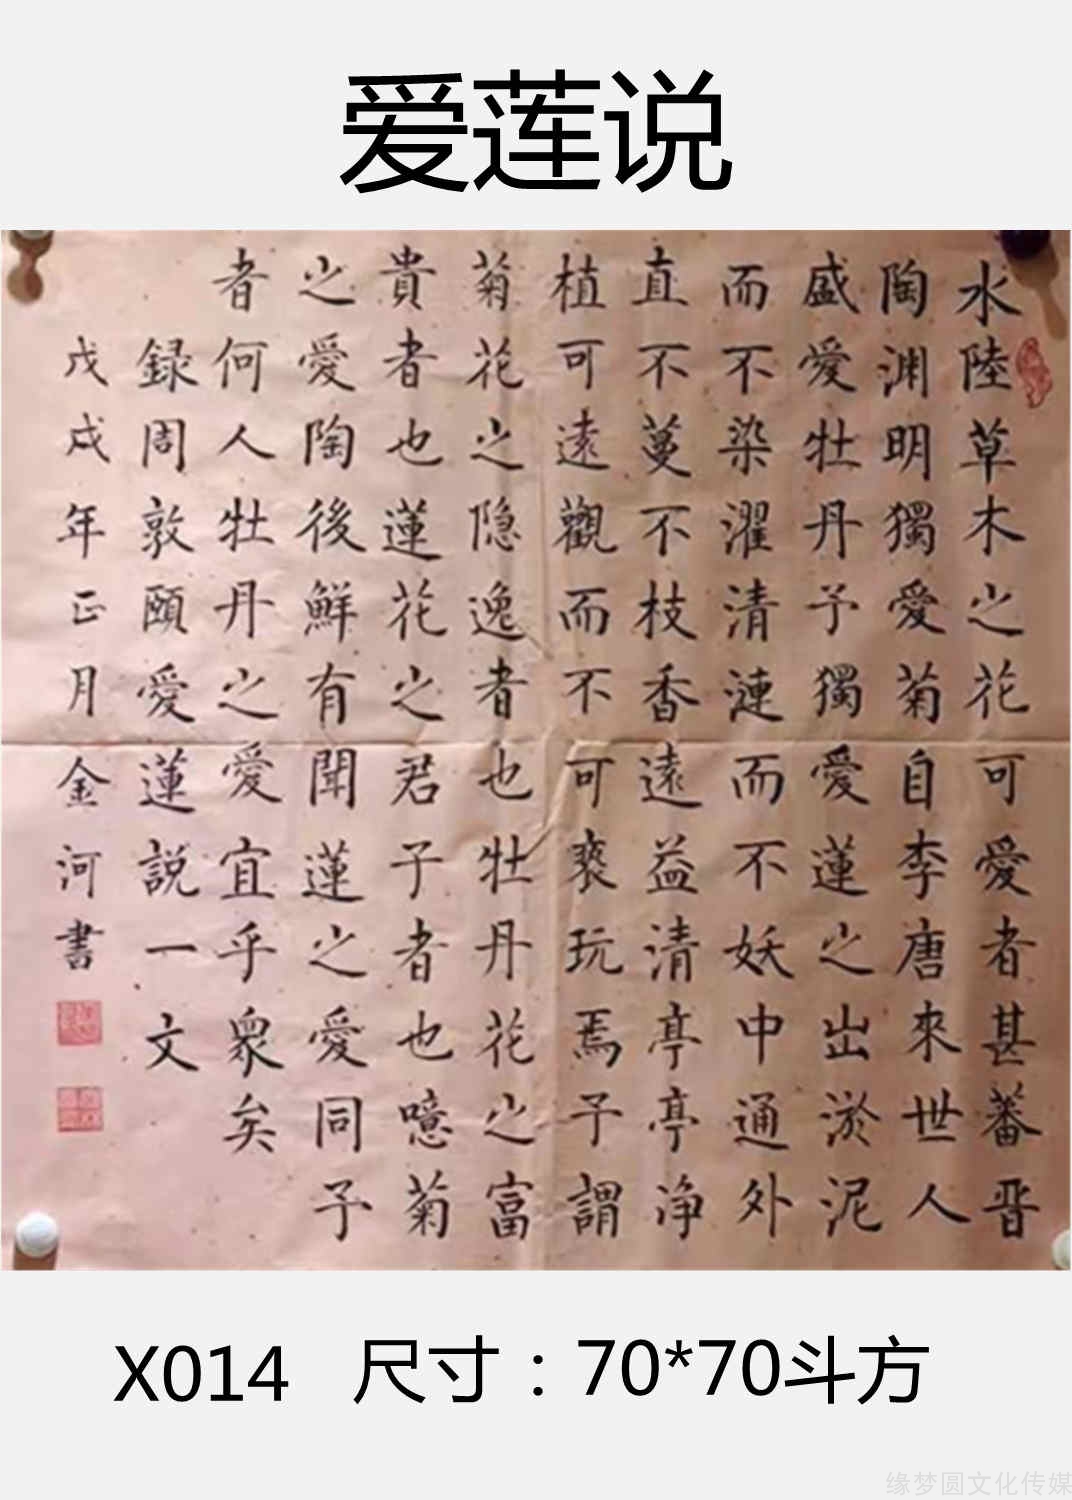 爱莲说
水陸草木之花可愛者甚蕃晋
陶渊明獨愛菊自李唐來世人
盛愛牡丹予獨愛蓮之出淤泥
而不染濯清漣而不妖中通外
直不蔓不枝香遠益清亭亭净
植可遠觀而不可褻玩焉予謂
菊花之隐逸者也牡丹花之富
貴者也蓮花之君子者也噫菊
之愛陶後鮮有聞蓮之愛同予
者何人牡丹之愛宜乎衆矣
録周敦頤愛蓮説一文
戊戌年正月金河書
X014 尺寸：70*70斗方
缘梦圆文化传媒